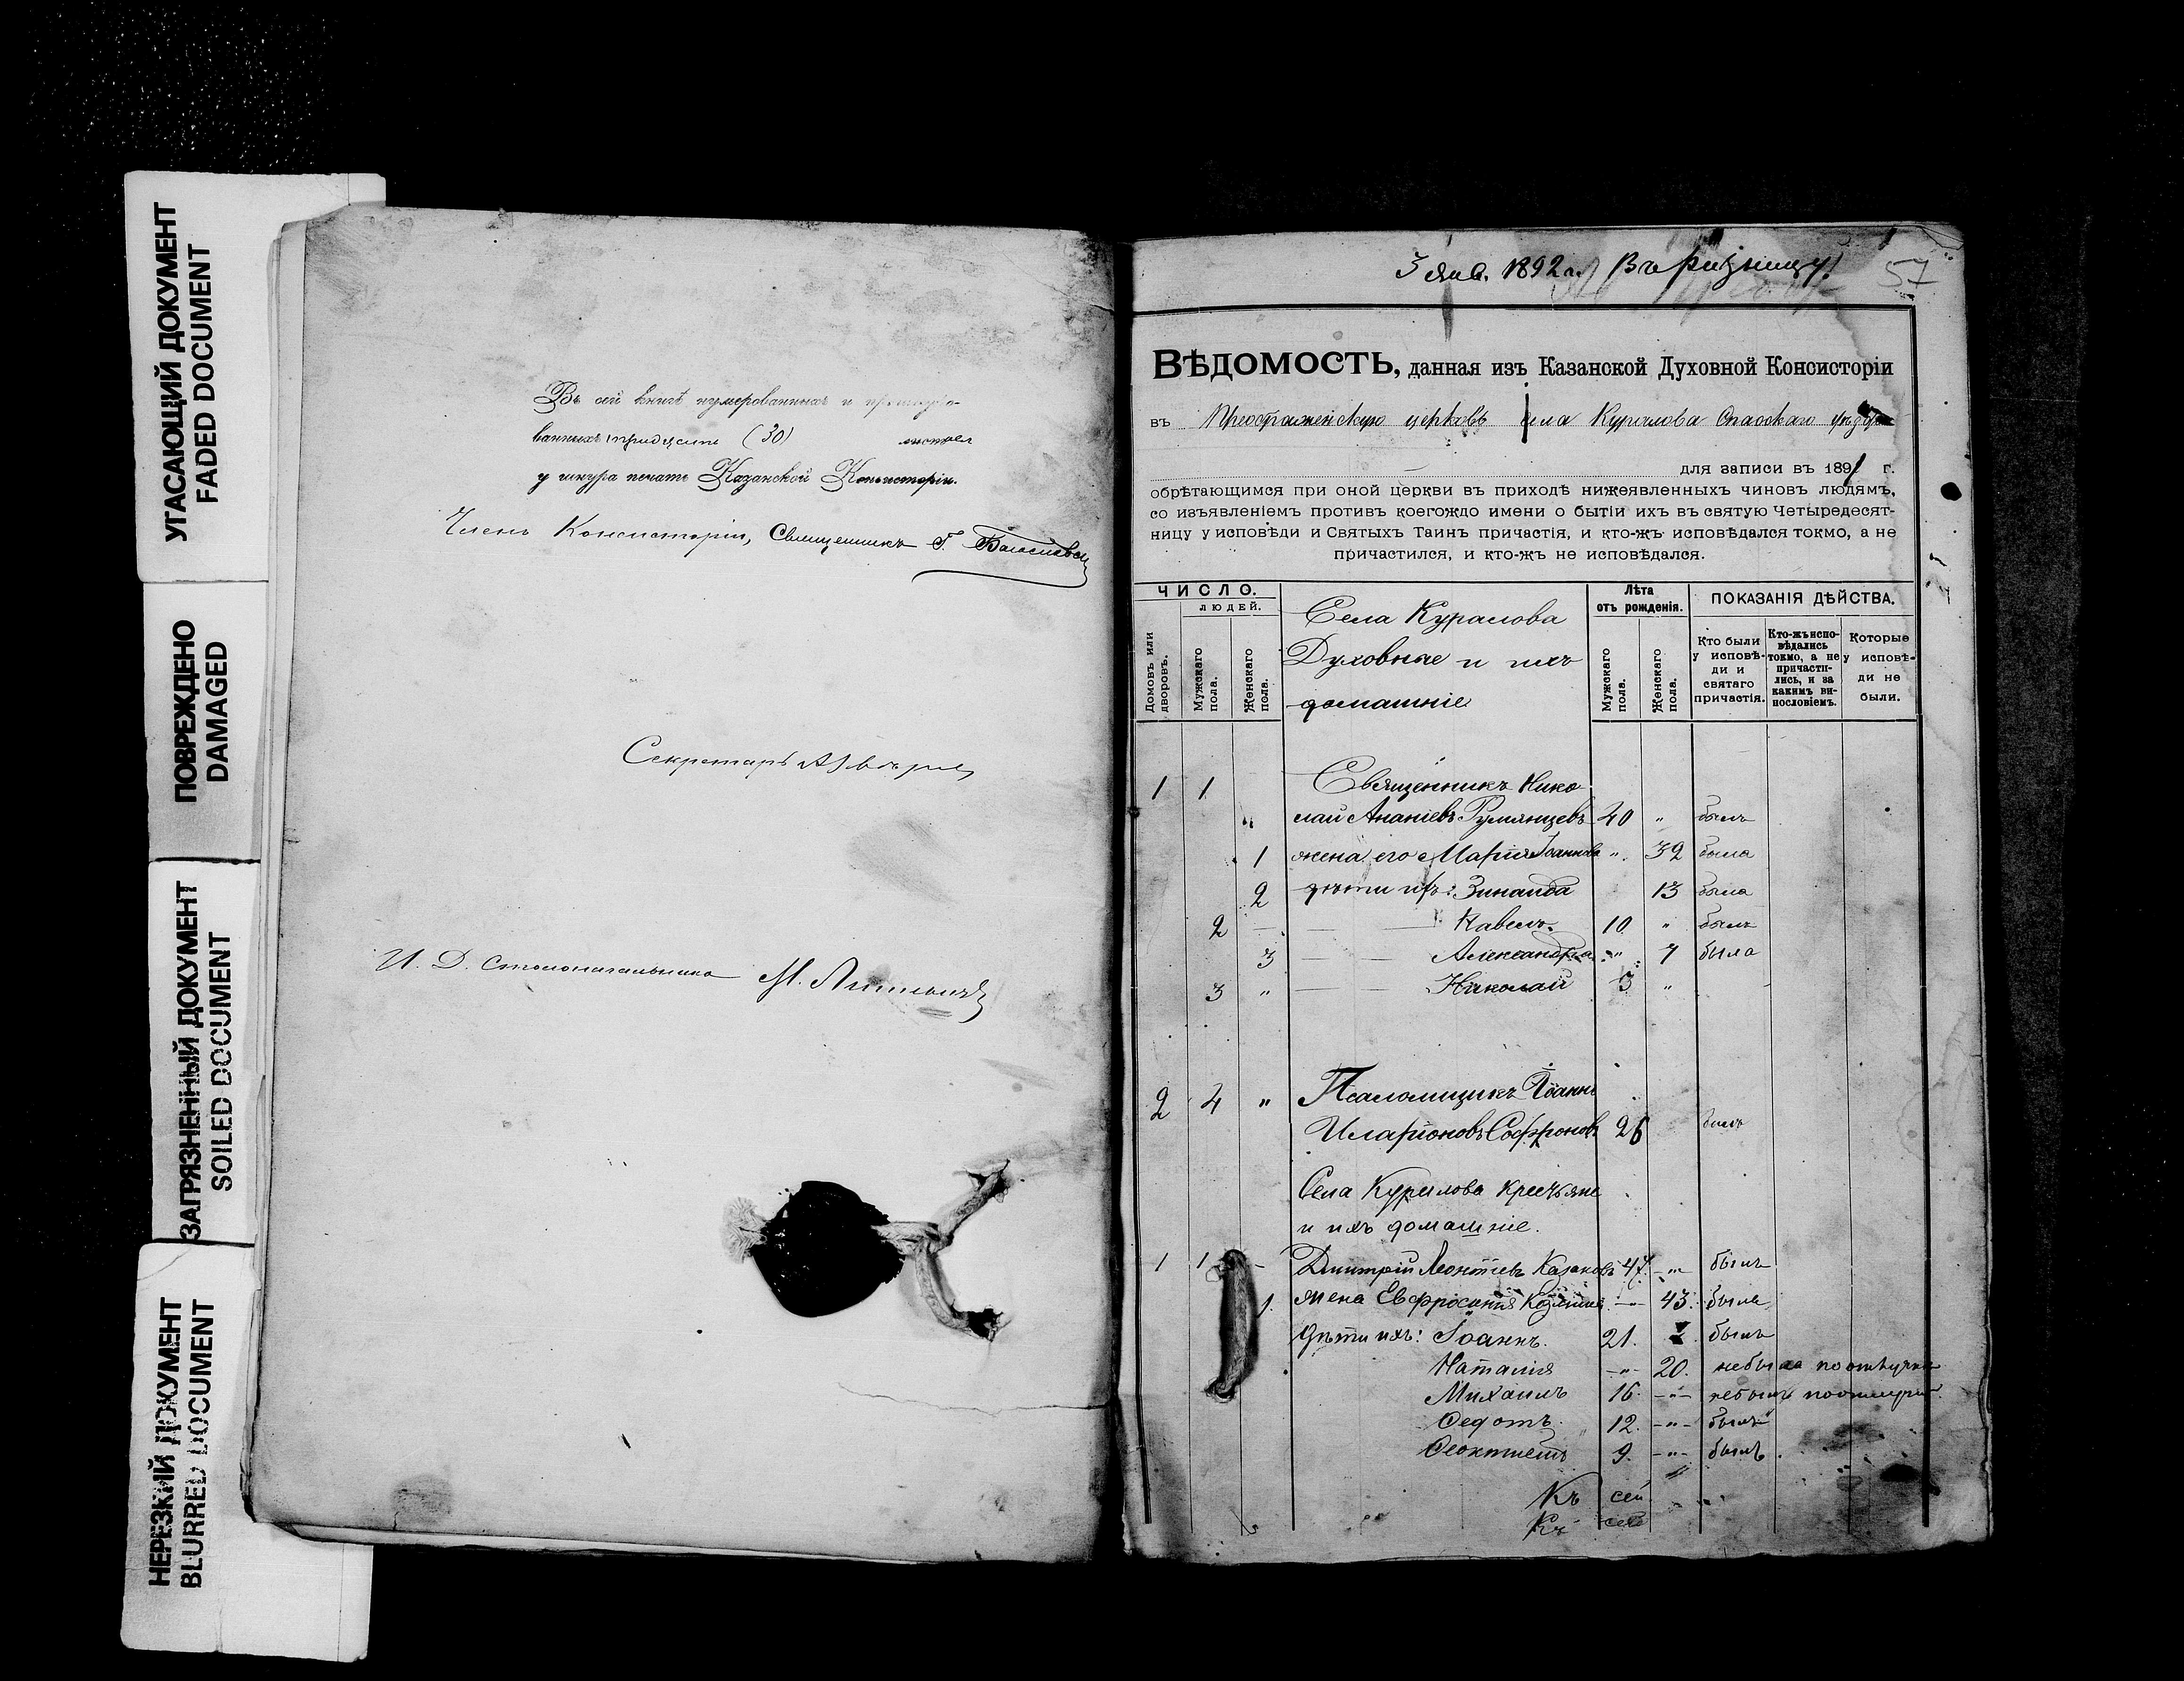 УГАСАЮЩИЙ ДОКУМЕНТ
FADED DOCUMENT
ПОВРЕЖДЕНО
DAMAGED
ЗАГРЯЗНЕННЫЙ ДОКУМЕНТ
SOILED DOCUMENT
НЕРЕЗКИЙ ДОКУМЕНТ
BLURRED DOCUMENT
Въ сей книгѣ нумерованныхъ и прошнуро-
ванныхъ тридцать (30) листовъ
у шнура печать Казанской Консисторіи.
Членъ Консисторіи, Священникъ Г.
Секретарь
И. Д. Столоначальника М.
3 янв. 1892 г. Въ ризницу!
57
ВѢДОМОСТЬ, данная изъ Казанской Духовной Консисторіи
въ Преображенскую церковь села Куралова Спасскаго уѣзда
для записи въ 1891 г.
обрѣтающимся при оной церкви въ приходѣ нижеявленныхъ чиновъ людямъ,
со изъявленіемъ противъ коегождо имени о бытіи ихъ въ святую Четыредесят-
ницу у исповѣди и Святыхъ Таинъ причастія, и кто-жъ исповѣдался токмо, а не
причастился, и кто-жъ не исповѣдался.
ЧИСЛО.
ЛЮДЕЙ.
Домовъ или дворовъ.
Мужскаго пола.
Женскаго пола.
Села Куралова
Духовные и ихъ
домашніе
Лѣта отъ рожденія.
Мужскаго пола.
Женскаго пола.
ПОКАЗАНІЯ ДѢЙСТВА.
Кто были у исповѣди и святаго причастія.
Кто-жъ исповѣдались токмо, а не причастились, и за какимъ винословіемъ.
Которые у исповѣди не были.
1 1 Священникъ Нико
" лай Ананіевъ Румянцевъ 40 " былъ
1 жена его Марія Іоаннова " 32 была
2 дѣти ихъ: Зинаида 13 была
2 — — — Павелъ 10 " былъ
3 — — Александра " 7 была
3 " — — Николай 3 "
2 4 " Псаломщикъ Іоаннъ
Иларіоновъ Софроновъ 26 былъ
Села Куралова крестьяне
и ихъ домашніе.
1 1 - Димитрій Леонтіевъ Казаковъ 47. -"- былъ
1. жена Евфросинія Козмина -"- 43. была
Дѣти ихъ: Іоаннъ. 21. былъ
Наталія -"- 20. небыла поотлучкѣ
Михаилъ 16. -"- небылъ поотлучкѣ.
Ѳедотъ. 12. -"- былъ
Ѳеоктистъ 9. -"- былъ.
Къ сей
Къ сей